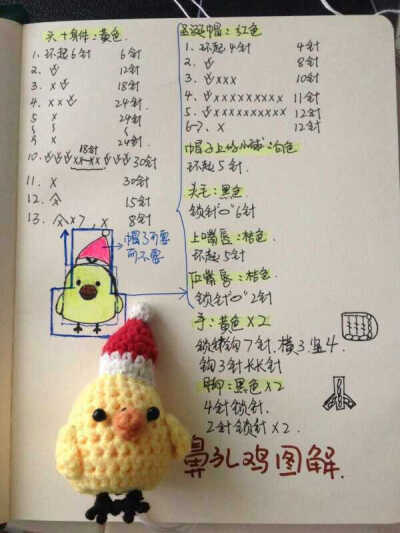 头+身体：黄色
1、环起6针 6针
2、V 12针
3、xV 18针
4、xxV 24针
5 x 24针
9 x 24针
18针
10、VVVxx~xxVVV30针
11、x 30针
12、A 15针
13、Ax7，x 8针
帽子可要
可不要
圣诞帽：红色
1、环起4针 4针
2、V 8针
3、Vxxx 10针
4、Vxxxxxxxxx 11针
5、Vxxxxxxxxxx 12针
6->、x 12针
帽子上的小球：白色
环起5针
头毛：黑色
锁针"0"6针
上嘴唇：桔色
环起5针
下嘴唇：桔色
锁针"0"2针
手：黄色x2
锁针钩7针.横3竖4.
钩3针长长针
脚：黑色x2
4针锁针.
2针锁针x2.
鼻孔鸡图解.